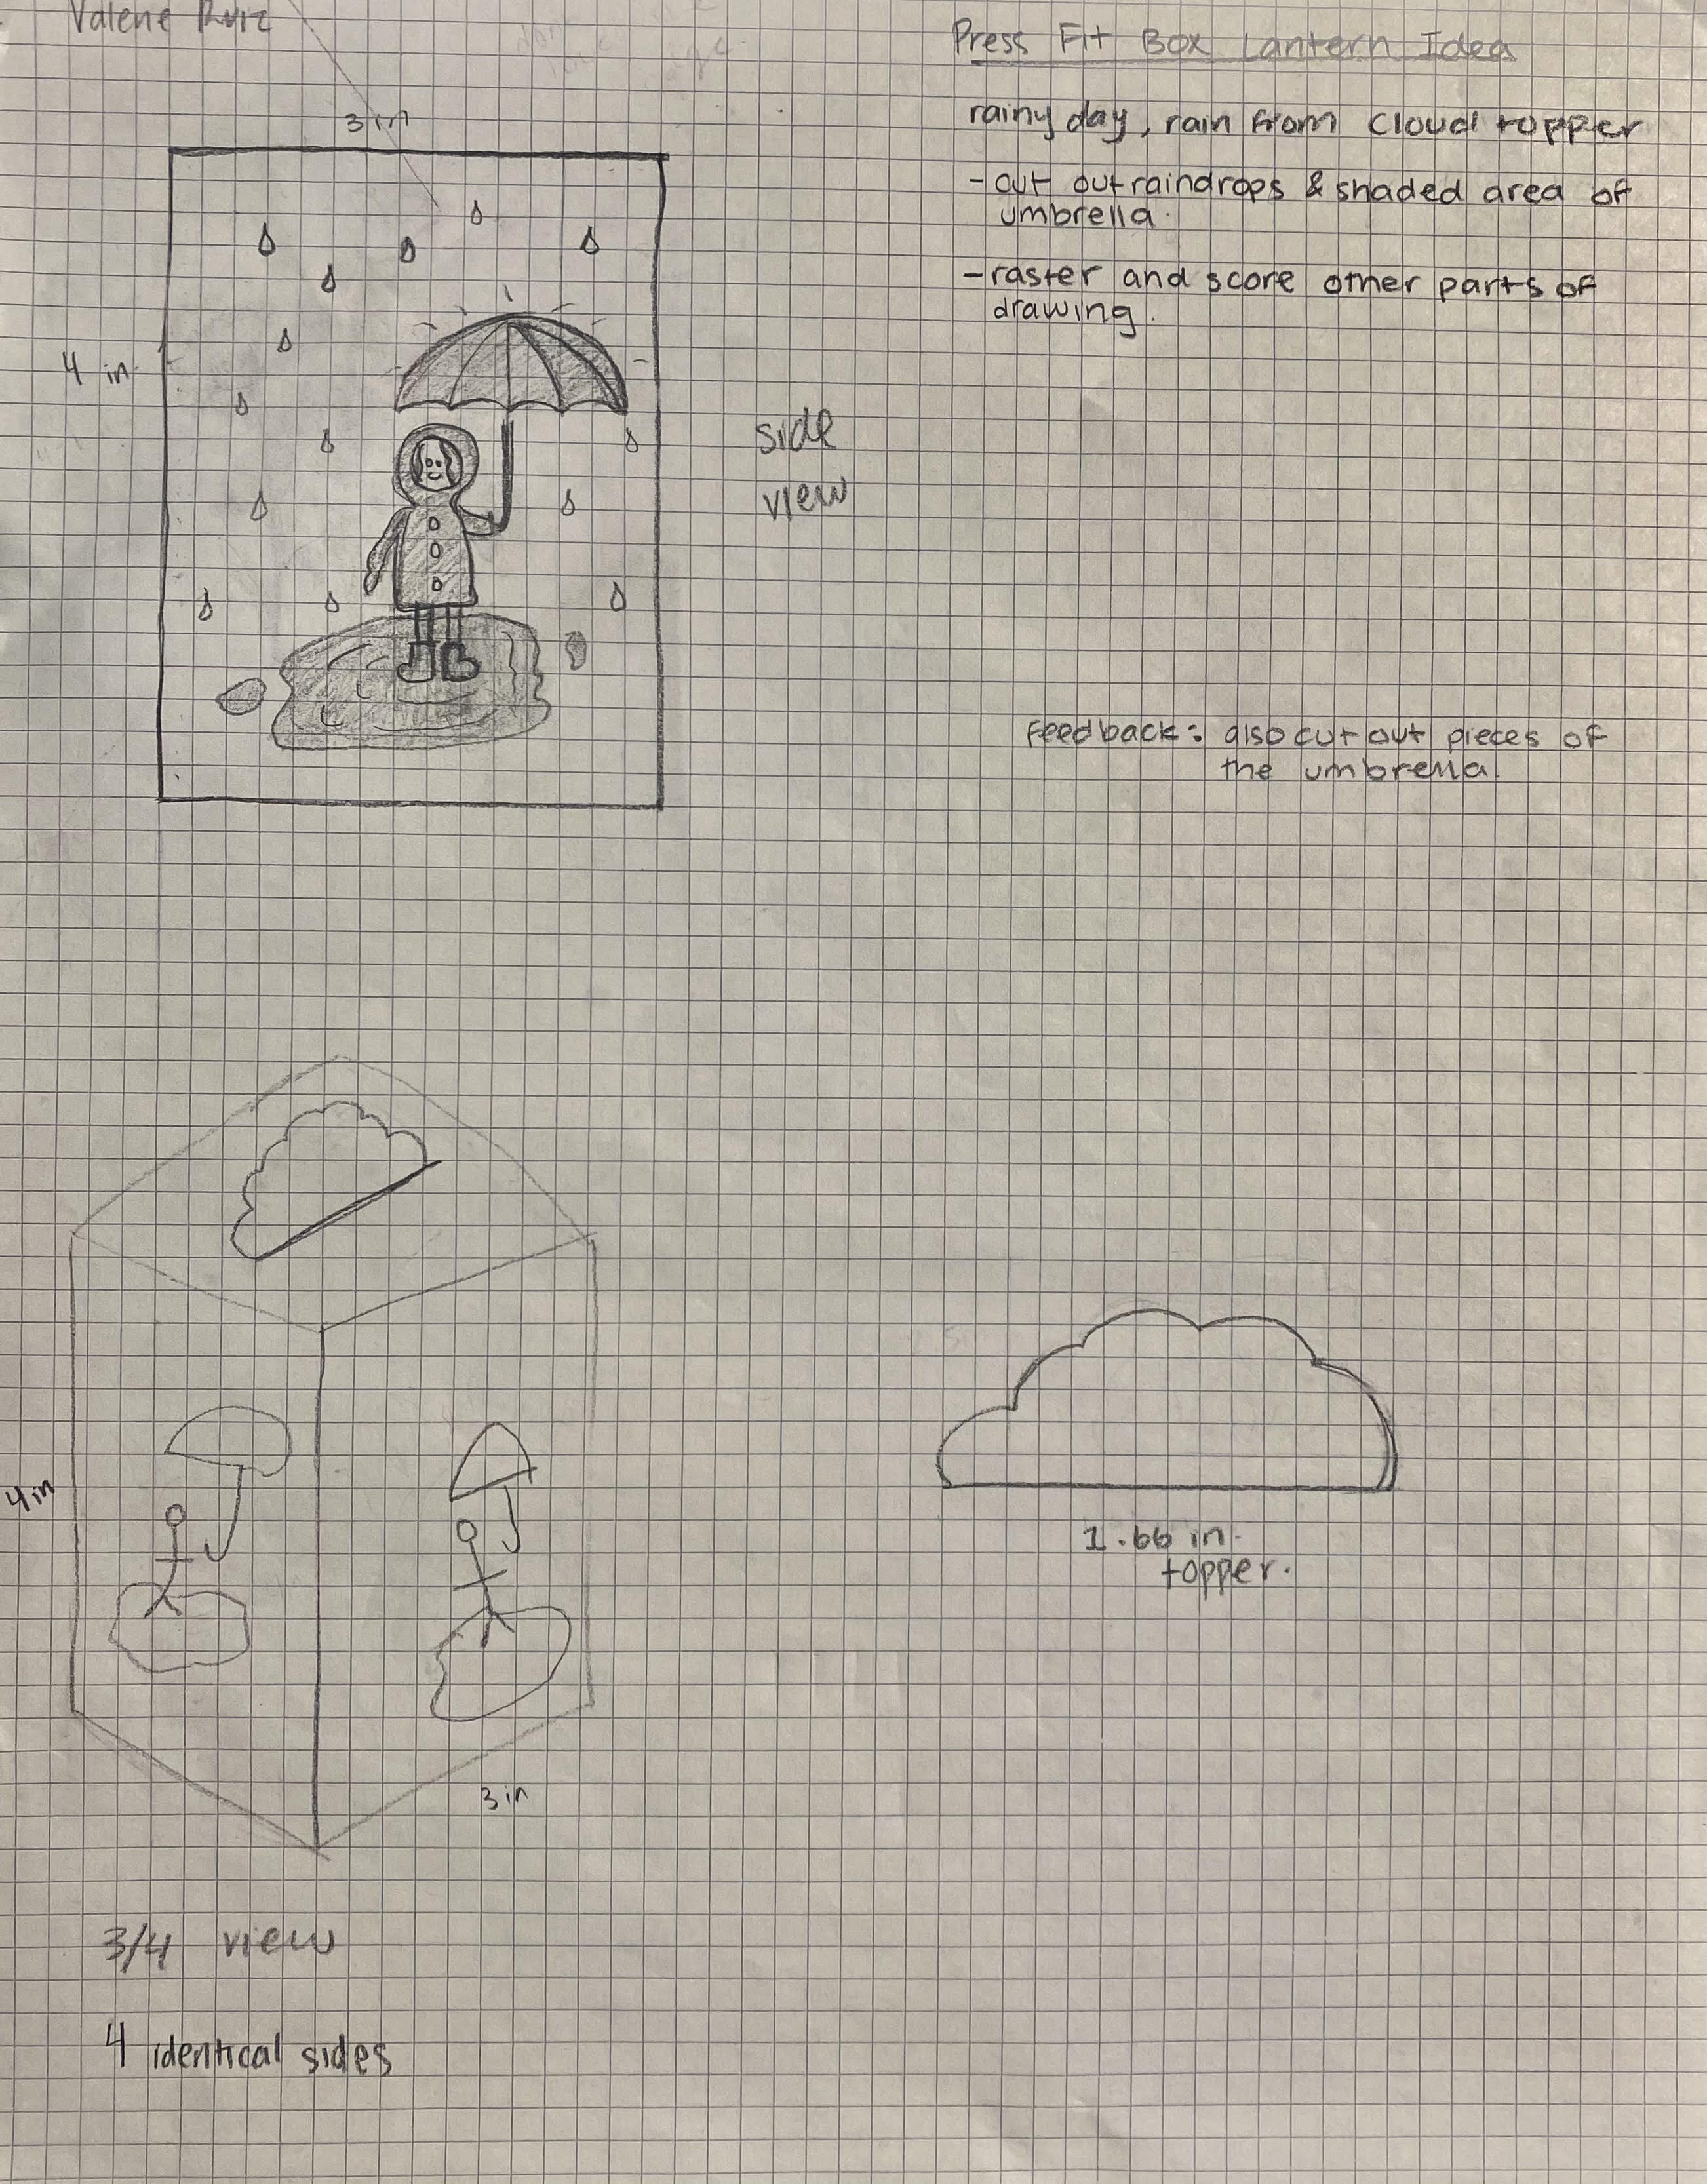 Valerie Ruiz
Press Fit Box Lantern Idea
rainy day, rain from cloud topper
- cut out raindrops & shaded area of
umbrella.
- raster and score other parts of
drawing.
3 in
4 in
side
view
Feedback: also cut out pieces of
the umbrella.
4 in
3 in
1.66 in.
topper.
3/4 view
4 identical sides